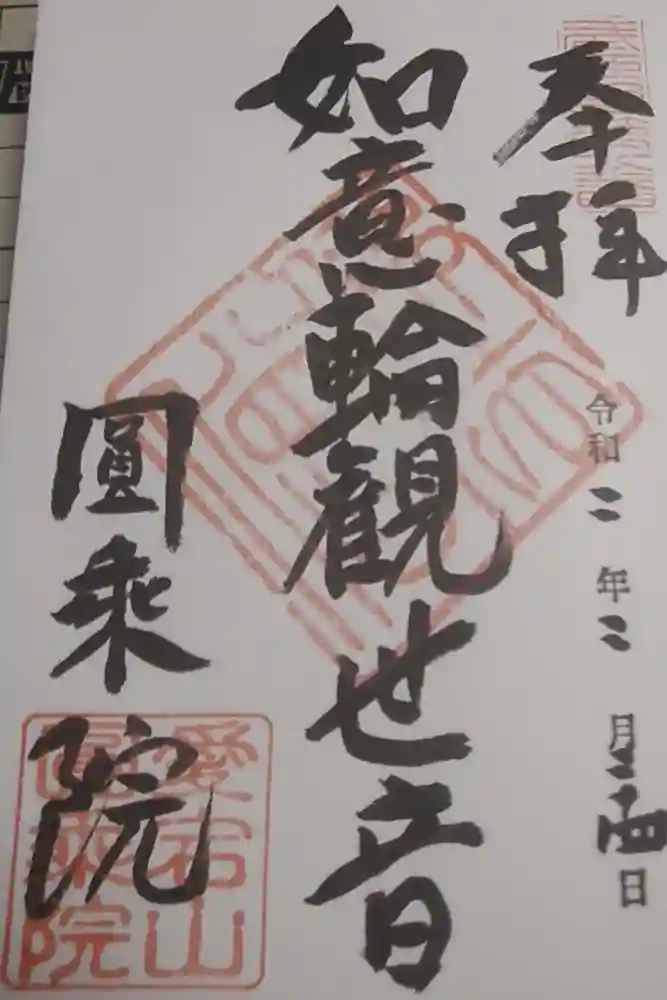 奉拝
令和二年二月二十四日
如意輪観世音
圓乘院
愛宕山
圓乗院